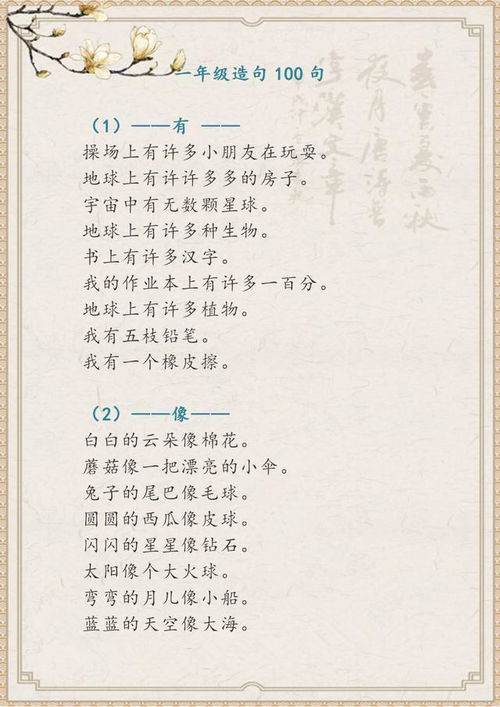 一年级造句100句
（1）——有 ——
操场上有许多小朋友在玩耍。
地球上有许许多多的房子。
宇宙中有无数颗星球。
地球上有许多种生物。
书上有许多汉字。
我的作业本上有许多一百分。
地球上有许多植物。
我有五枝铅笔。
我有一个橡皮擦。
（2）——像——
白白的云朵像棉花。
蘑菇像一把漂亮的小伞。
兔子的尾巴像毛球。
圆圆的西瓜像皮球。
闪闪的星星像钻石。
太阳像个大火球。
弯弯的月儿像小船。
蓝蓝的天空像大海。